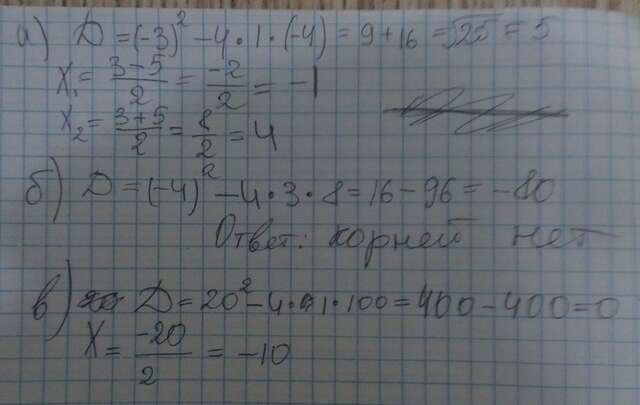 а) D = (-3)² - 4 · 1 · (-4) = 9 + 16 = √25 = 5
X₁ = (3-5)/2 = -2/2 = -1
X₂ = (3+5)/2 = 8/2 = 4
б) D = (-4)² - 4 · 3 · 8 = 16 - 96 = -80
Ответ: корней нет
в) D = 20² - 4 · 1 · 100 = 400 - 400 = 0
X = -20/2 = -10